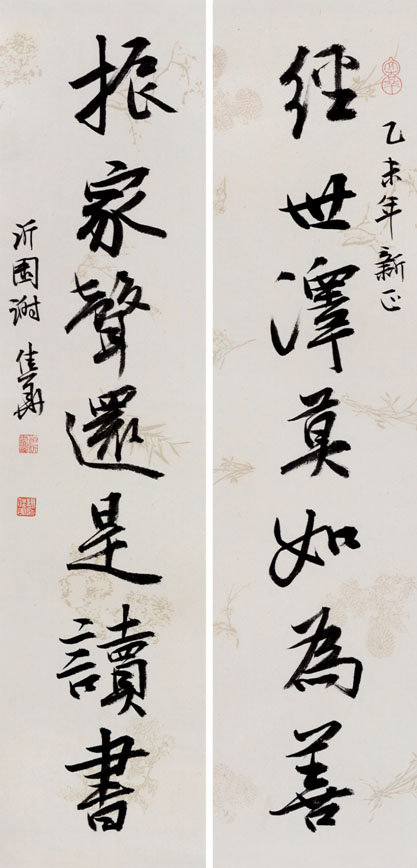 經世澤莫如為善
乙未年新正
振家聲還是讀書
沂園謝佳華